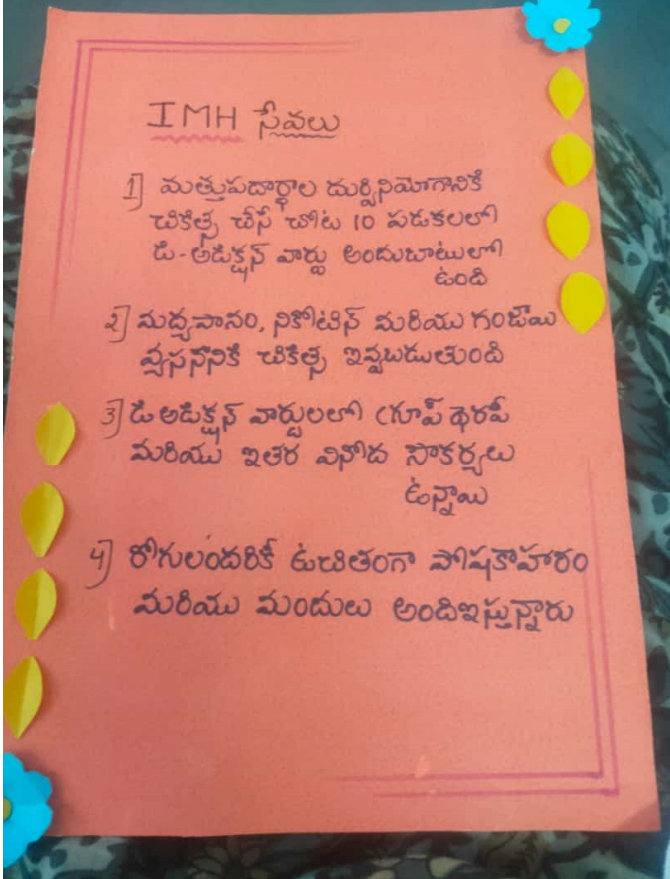 IMH సేవలు
1] మత్తుపదార్థాల దుర్వినియోగానికి
చికిత్స చేసే చోట 10 పడకలలో
డి-అడిక్షన్ వార్డు అందుబాటులో
ఉంది
2] మద్యపానం, నికోటిన్ మరియు గంజాయి
వ్యసనానికి చికిత్స ఇవ్వబడుతుంది
3] డి అడిక్షన్ వార్డులలో గ్రూప్ థెరపీ
మరియు ఇతర వినోద సౌకర్యలు
ఉన్నాయి
4] రోగులందరికీ ఉచితంగా పోషకాహారం
మరియు మందులు అందిఇస్తున్నారు